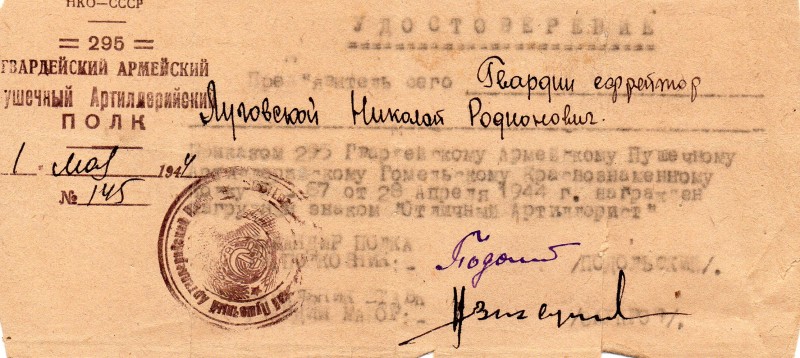 НКО—СССР
= 295 =
ГВАРДЕЙСКИЙ АРМЕЙСКИЙ
ушечный Артиллерийский
ПОЛК
1 мая 1944
№ 145
УДОСТОВЕРЕНИЕ
Пред"явитель сего Гвардии ефрейтор
Луговской Николай Родионович.
Приказом 295 Гвардейскому Армейскому Пушечному
Гомельскому Краснознаменному
от 28 Апреля 1944 г. награжден
нагрудным знаком "Отличный Артиллерист"
КОМАНДИР ПОЛКА
/ПОДОЛЬСКИЙ/.